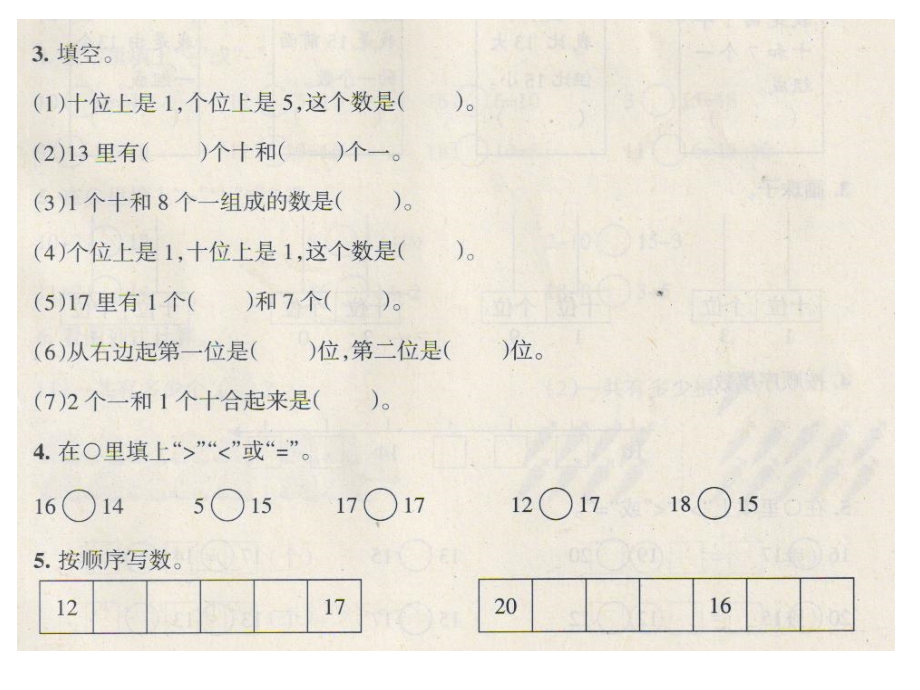 3. 填空。
(1)十位上是1,个位上是5,这个数是(  )。
(2)13里有(  )个十和(  )个一。
(3)1个十和8个一组成的数是(  )。
(4)个位上是1,十位上是1,这个数是(  )。
(5)17里有1个(  )和7个(  )。
(6)从右边起第一位是(  )位,第二位是(  )位。
(7)2个一和1个十合起来是(  )。
4. 在○里填上“>”“<”或“=”。
16○14 5○15 17○17 12○17 18○15
5. 按顺序写数。
12 17 20 16